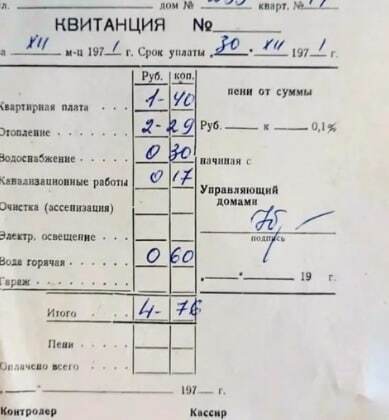 дом № кварт. №
КВИТАНЦИЯ №
XII м-ц 1971 г. Срок уплаты „30“ XII 1971 г.
Руб. коп. пени от суммы
Квартирная плата 1-40
Отопление 2-29 Руб. к 0,1%
Водоснабжение 0 30 начиная с
Канализационные работы 0 17
Очистка (ассенизация) Управляющий
домами
Электр. освещение подпись
Вода горячая 0 60
Гараж „ “ 19 г.
Итого 4-76
Пени
Оплачено всего
„ “ 197 г.
Контролер Кассир